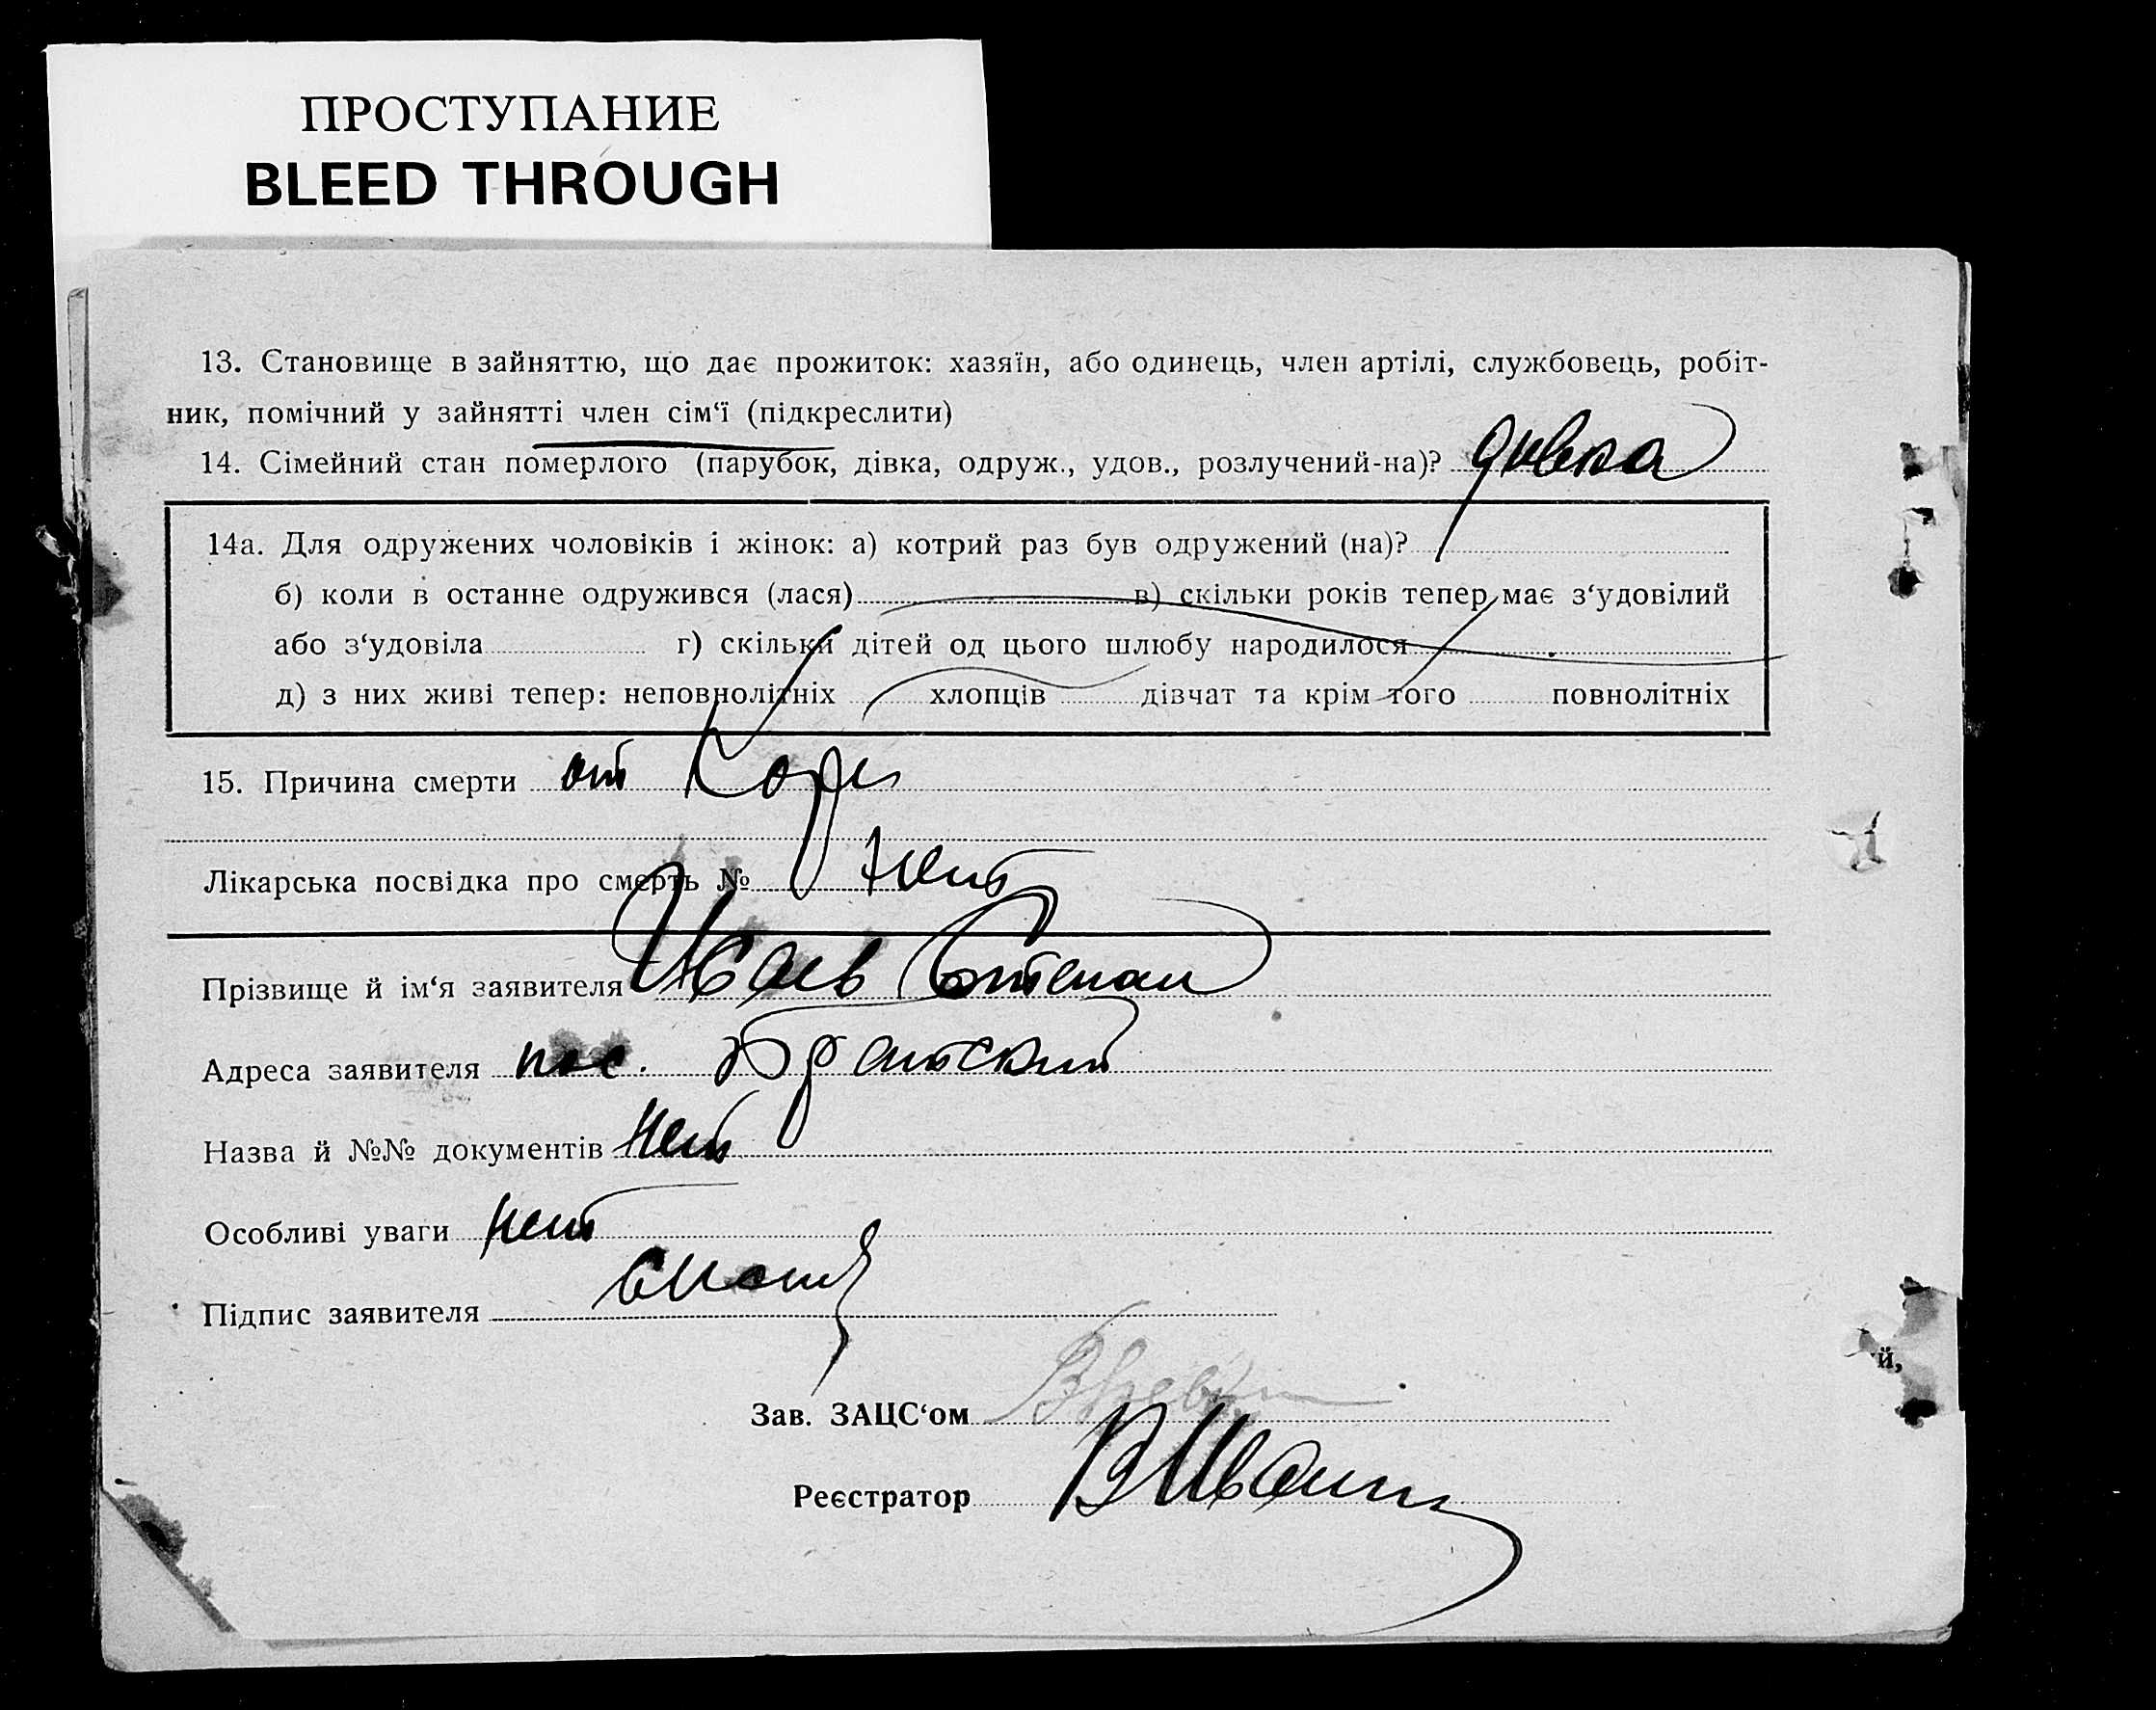 ПРОСТУПАНИЕ
BLEED THROUGH
13. Становище в зайняттю, що дає прожиток: хазяїн, або одинець, член артілі, службовець, робіт-
ник, помічний у зайнятті член сім‘ї (підкреслити)
14. Сімейний стан померлого (парубок, дівка, одруж., удов., розлучений-на)? дивка
14а. Для одружених чоловіків і жінок: а) котрий раз був одружений (на)?
б) коли в останне одружився (лася) в) скільки років тепер має з‘удовілий
або з‘удовіла г) скільки дітей од цього шлюбу народилося
д) з них живі тепер: неповнолітніх хлопців дівчат та крім того повнолітніх
15. Причина смерти от Кори
Лікарська посвідка про смерть № нет
Прізвище й ім‘я заявителя Исаев Степан
Адреса заявителя пос. Братский
Назва й №№ документів нет
Особливі уваги нет
Підпис заявителя
й,
Зав. ЗАЦС‘ом
Реєстратор